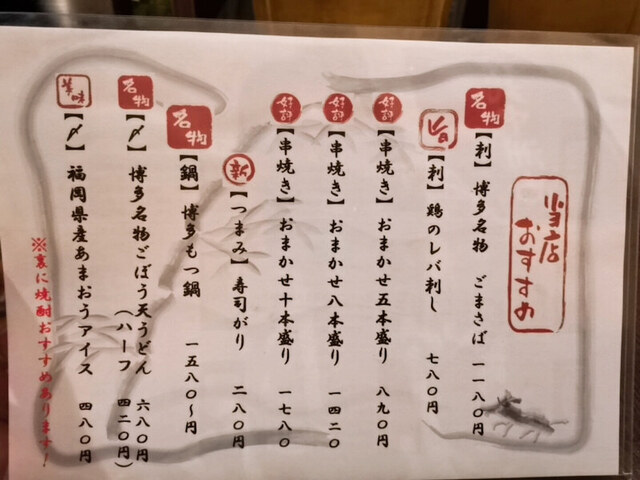 当店おすすめ
名物
【刺】博多名物 ごまさば 一一八〇円
旨
【刺】鶏のレバ刺し 七八〇円
好評
【串焼き】おまかせ五本盛り 八九〇円
好評
【串焼き】おまかせ八本盛り 一四二〇
好評
【串焼き】おまかせ十本盛り 一七八〇
新
【つまみ】寿司がり 二八〇円
名物
【鍋】博多もつ鍋 一五八〇〜円
名物
【〆】博多名物ごぼう天うどん 六八〇円
(ハーフ 四二〇円)
美味
【〆】福岡県産あまおうアイス 四八〇円
※裏に焼酎おすすめあります!